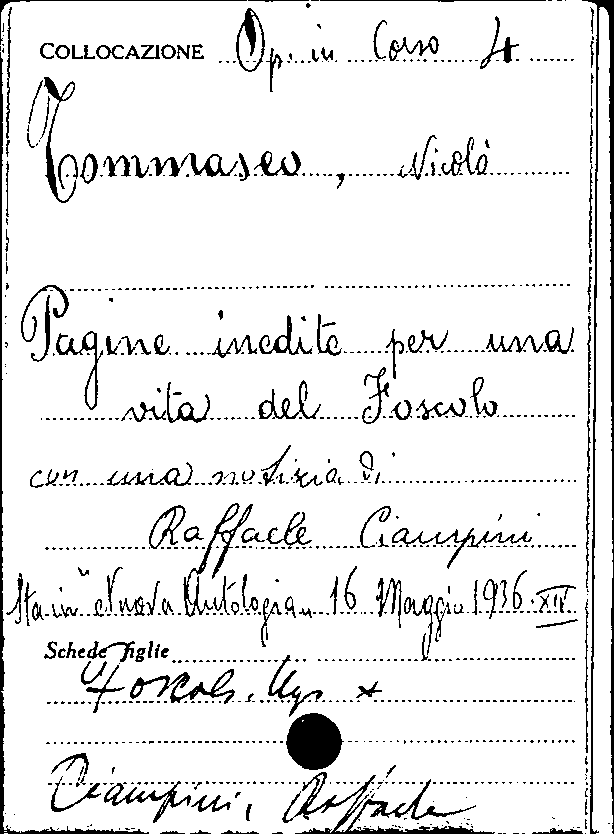 COLLOCAZIONE Op. in Corso 4
Tommaseo, Nicolò
Pagine inedite per una
vita del Foscolo
con una notizia di
Raffaele Ciampini
Sta in "Nuova Antologia" 16 Maggio 1936. XIV
Schede figlie
Foscolo, Ugo x
Ciampini, Raffaele